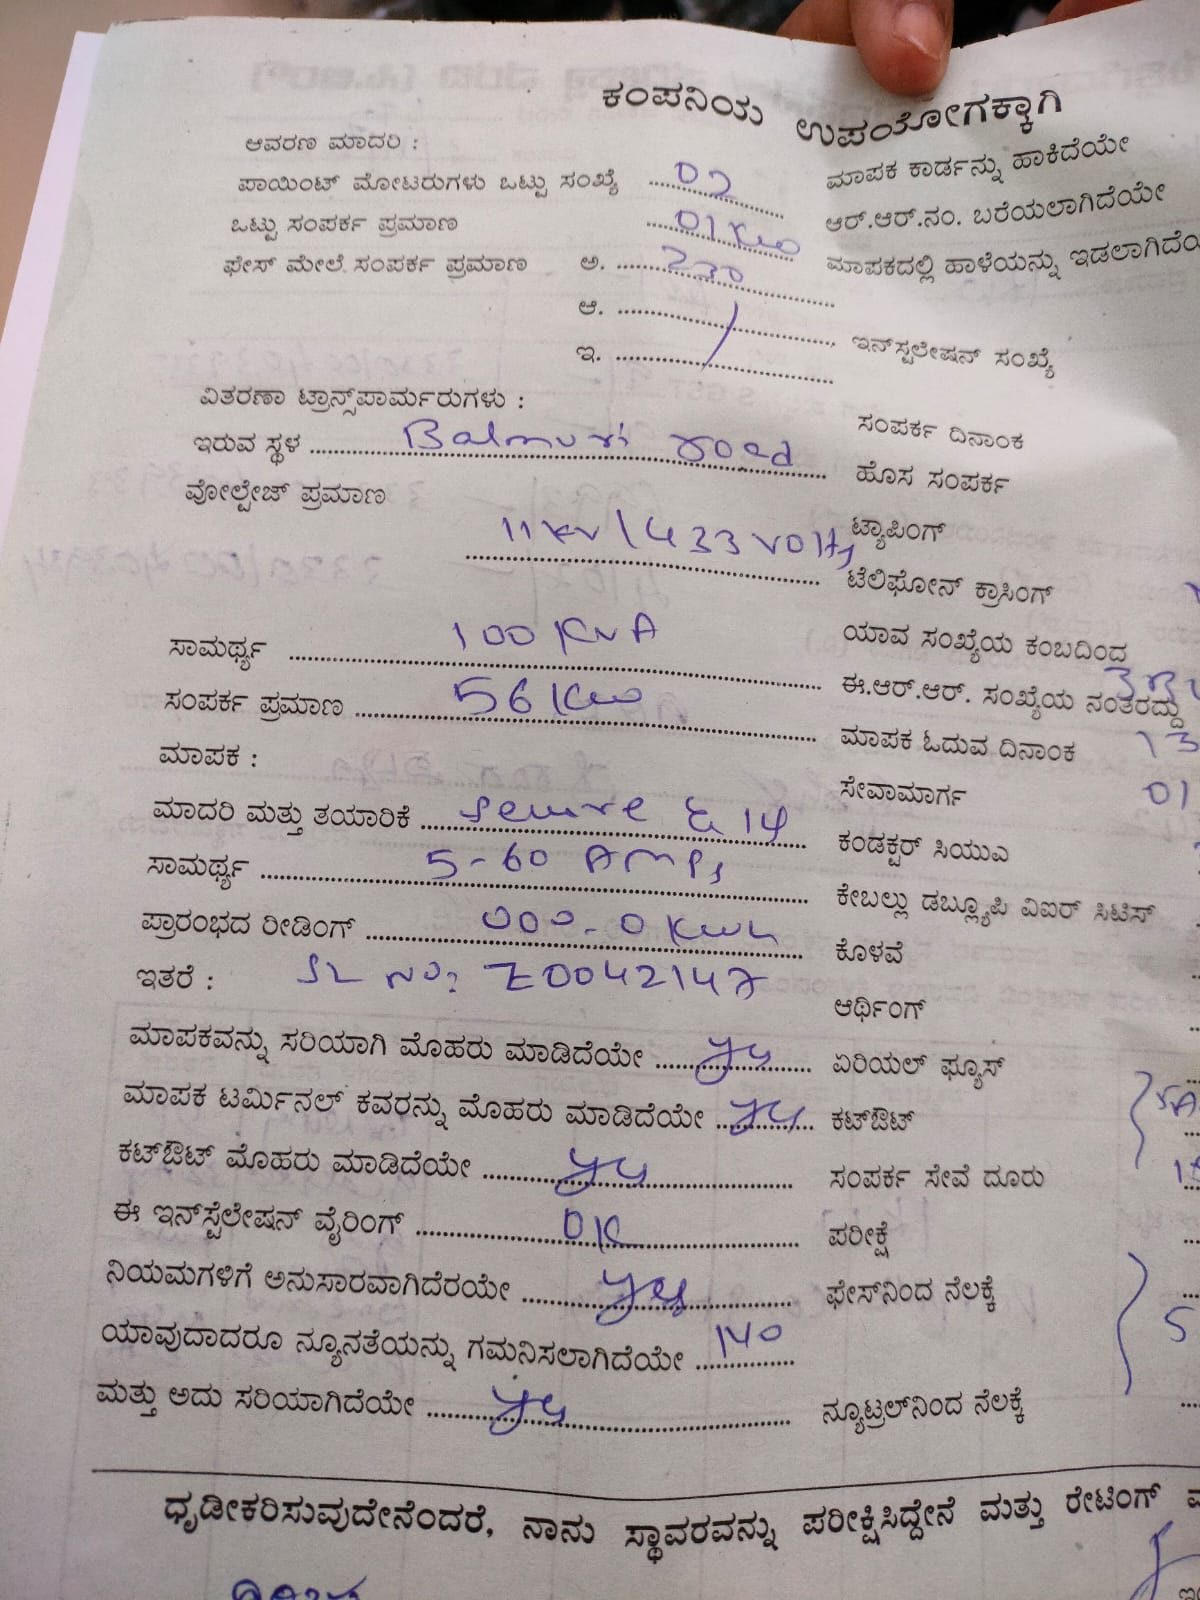 ಕಂಪನಿಯ ಉಪಯೋಗಕ್ಕಾಗಿ
ಆವರಣ ಮಾದರಿ :
ಪಾಯಿಂಟ್ ಮೋಟರುಗಳು ಒಟ್ಟು ಸಂಖ್ಯೆ 02
ಒಟ್ಟು ಸಂಪರ್ಕ ಪ್ರಮಾಣ 01 Kw
ಫೇಸ್ ಮೇಲೆ ಸಂಪರ್ಕ ಪ್ರಮಾಣ ಅ. 230
ಆ.
ಇ.
ವಿತರಣಾ ಟ್ರಾನ್ಸ್‌ಪಾರ್ಮರುಗಳು :
ಇರುವ ಸ್ಥಳ Balmuri road
ವೋಲ್ಟೇಜ್ ಪ್ರಮಾಣ
11 kv / 433 volts
ಸಾಮರ್ಥ್ಯ 100 KVA
ಸಂಪರ್ಕ ಪ್ರಮಾಣ 56 Kw
ಮಾಪಕ :
ಮಾದರಿ ಮತ್ತು ತಯಾರಿಕೆ Secure & 1φ
ಸಾಮರ್ಥ್ಯ 5-60 Amps
ಪ್ರಾರಂಭದ ರೀಡಿಂಗ್ 000.0 Kwh
ಇತರೆ : SL No: Z0042147
ಮಾಪಕವನ್ನು ಸರಿಯಾಗಿ ಮೊಹರು ಮಾಡಿದೆಯೇ yes
ಮಾಪಕ ಟರ್ಮಿನಲ್ ಕವರನ್ನು ಮೊಹರು ಮಾಡಿದೆಯೇ yes
ಕಟ್‌ಔಟ್ ಮೊಹರು ಮಾಡಿದೆಯೇ yes
ಈ ಇನ್‌ಸ್ಟೆಲೇಷನ್ ವೈರಿಂಗ್ OK
ನಿಯಮಗಳಿಗೆ ಅನುಸಾರವಾಗಿದೆರಯೇ yes
ಯಾವುದಾದರೂ ನ್ಯೂನತೆಯನ್ನು ಗಮನಿಸಲಾಗಿದೆಯೇ
ಮತ್ತು ಅದು ಸರಿಯಾಗಿದೆಯೇ yes
ಮಾಪಕ ಕಾರ್ಡನ್ನು ಹಾಕಿದೆಯೇ
ಆರ್.ಆರ್.ನಂ. ಬರೆಯಲಾಗಿದೆಯೇ
ಮಾಪಕದಲ್ಲಿ ಹಾಳೆಯನ್ನು
ಇನ್‌ಸ್ಟಲೇಷನ್ ಸಂಖ್ಯೆ
ಸಂಪರ್ಕ ದಿನಾಂಕ
ಹೊಸ ಸಂಪರ್ಕ
ಟ್ಯಾಪಿಂಗ್
ಟೆಲಿಫೋನ್ ಕ್ರಾಸಿಂಗ್
ಯಾವ ಸಂಖ್ಯೆಯ ಕಂಬದಿಂದ
ಈ.ಆರ್.ಆರ್. ಸಂಖ್ಯೆಯ ನಂತರದ್ದು
ಮಾಪಕ ಓದುವ ದಿನಾಂಕ 13
ಸೇವಾಮಾರ್ಗ 01
ಕಂಡಕ್ಟರ್ ಸಿಯುಎ
ಕೇಬಲ್ಲು ಡಬ್ಲ್ಯೂಪಿ ವಿಐರ್ ಸಿಟಿಸ್
ಕೊಳವೆ
ಆರ್ಥಿಂಗ್
ಏರಿಯಲ್ ಫ್ಯೂಸ್
ಕಟ್‌ಔಟ್
ಸಂಪರ್ಕ ಸೇವೆ ದೂರು
ಪರೀಕ್ಷೆ
ಫೇಸ್‌ನಿಂದ ನೆಲಕ್ಕೆ
5
ನ್ಯೂಟ್ರಲ್‌ನಿಂದ ನೆಲಕ್ಕೆ
ಧೃಡೀಕರಿಸುವುದೇನೆಂದರೆ, ನಾನು ಸ್ಥಾವರವನ್ನು ಪರೀಕ್ಷಿಸಿದ್ದೇನೆ ಮತ್ತು ರೇಟಿಂಗ್